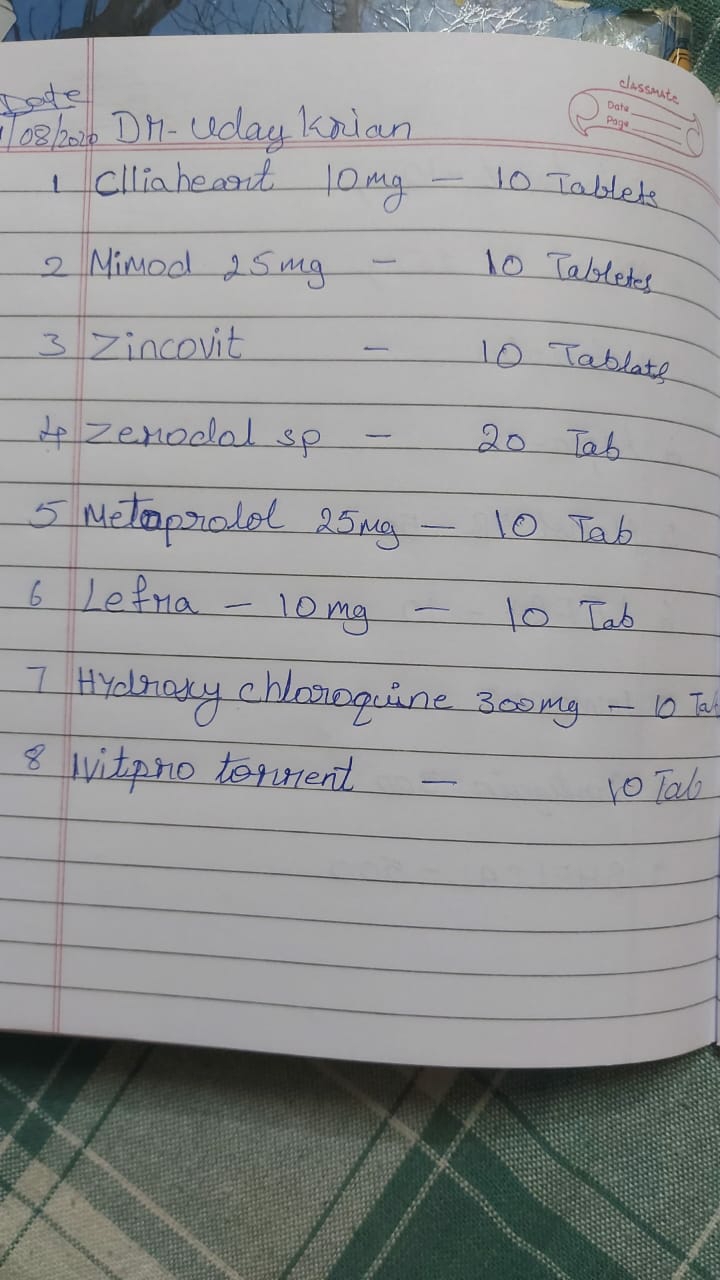 classmate
Date
Page
Date
/08/2020 Dr-Uday Krian
1 Clliaheart 10mg - 10 Tablets
2 Mimod 25mg - 10 Tabletes
3 Zincovit - 10 Tablats
4 Zerodal sp - 20 Tab
5 Metaprolol 25mg - 10 Tab
6 Lefra - 10mg - 10 Tab
7 Hydroxy chloroquine 300mg - 10 Tab
8 torrent - 10 Tab